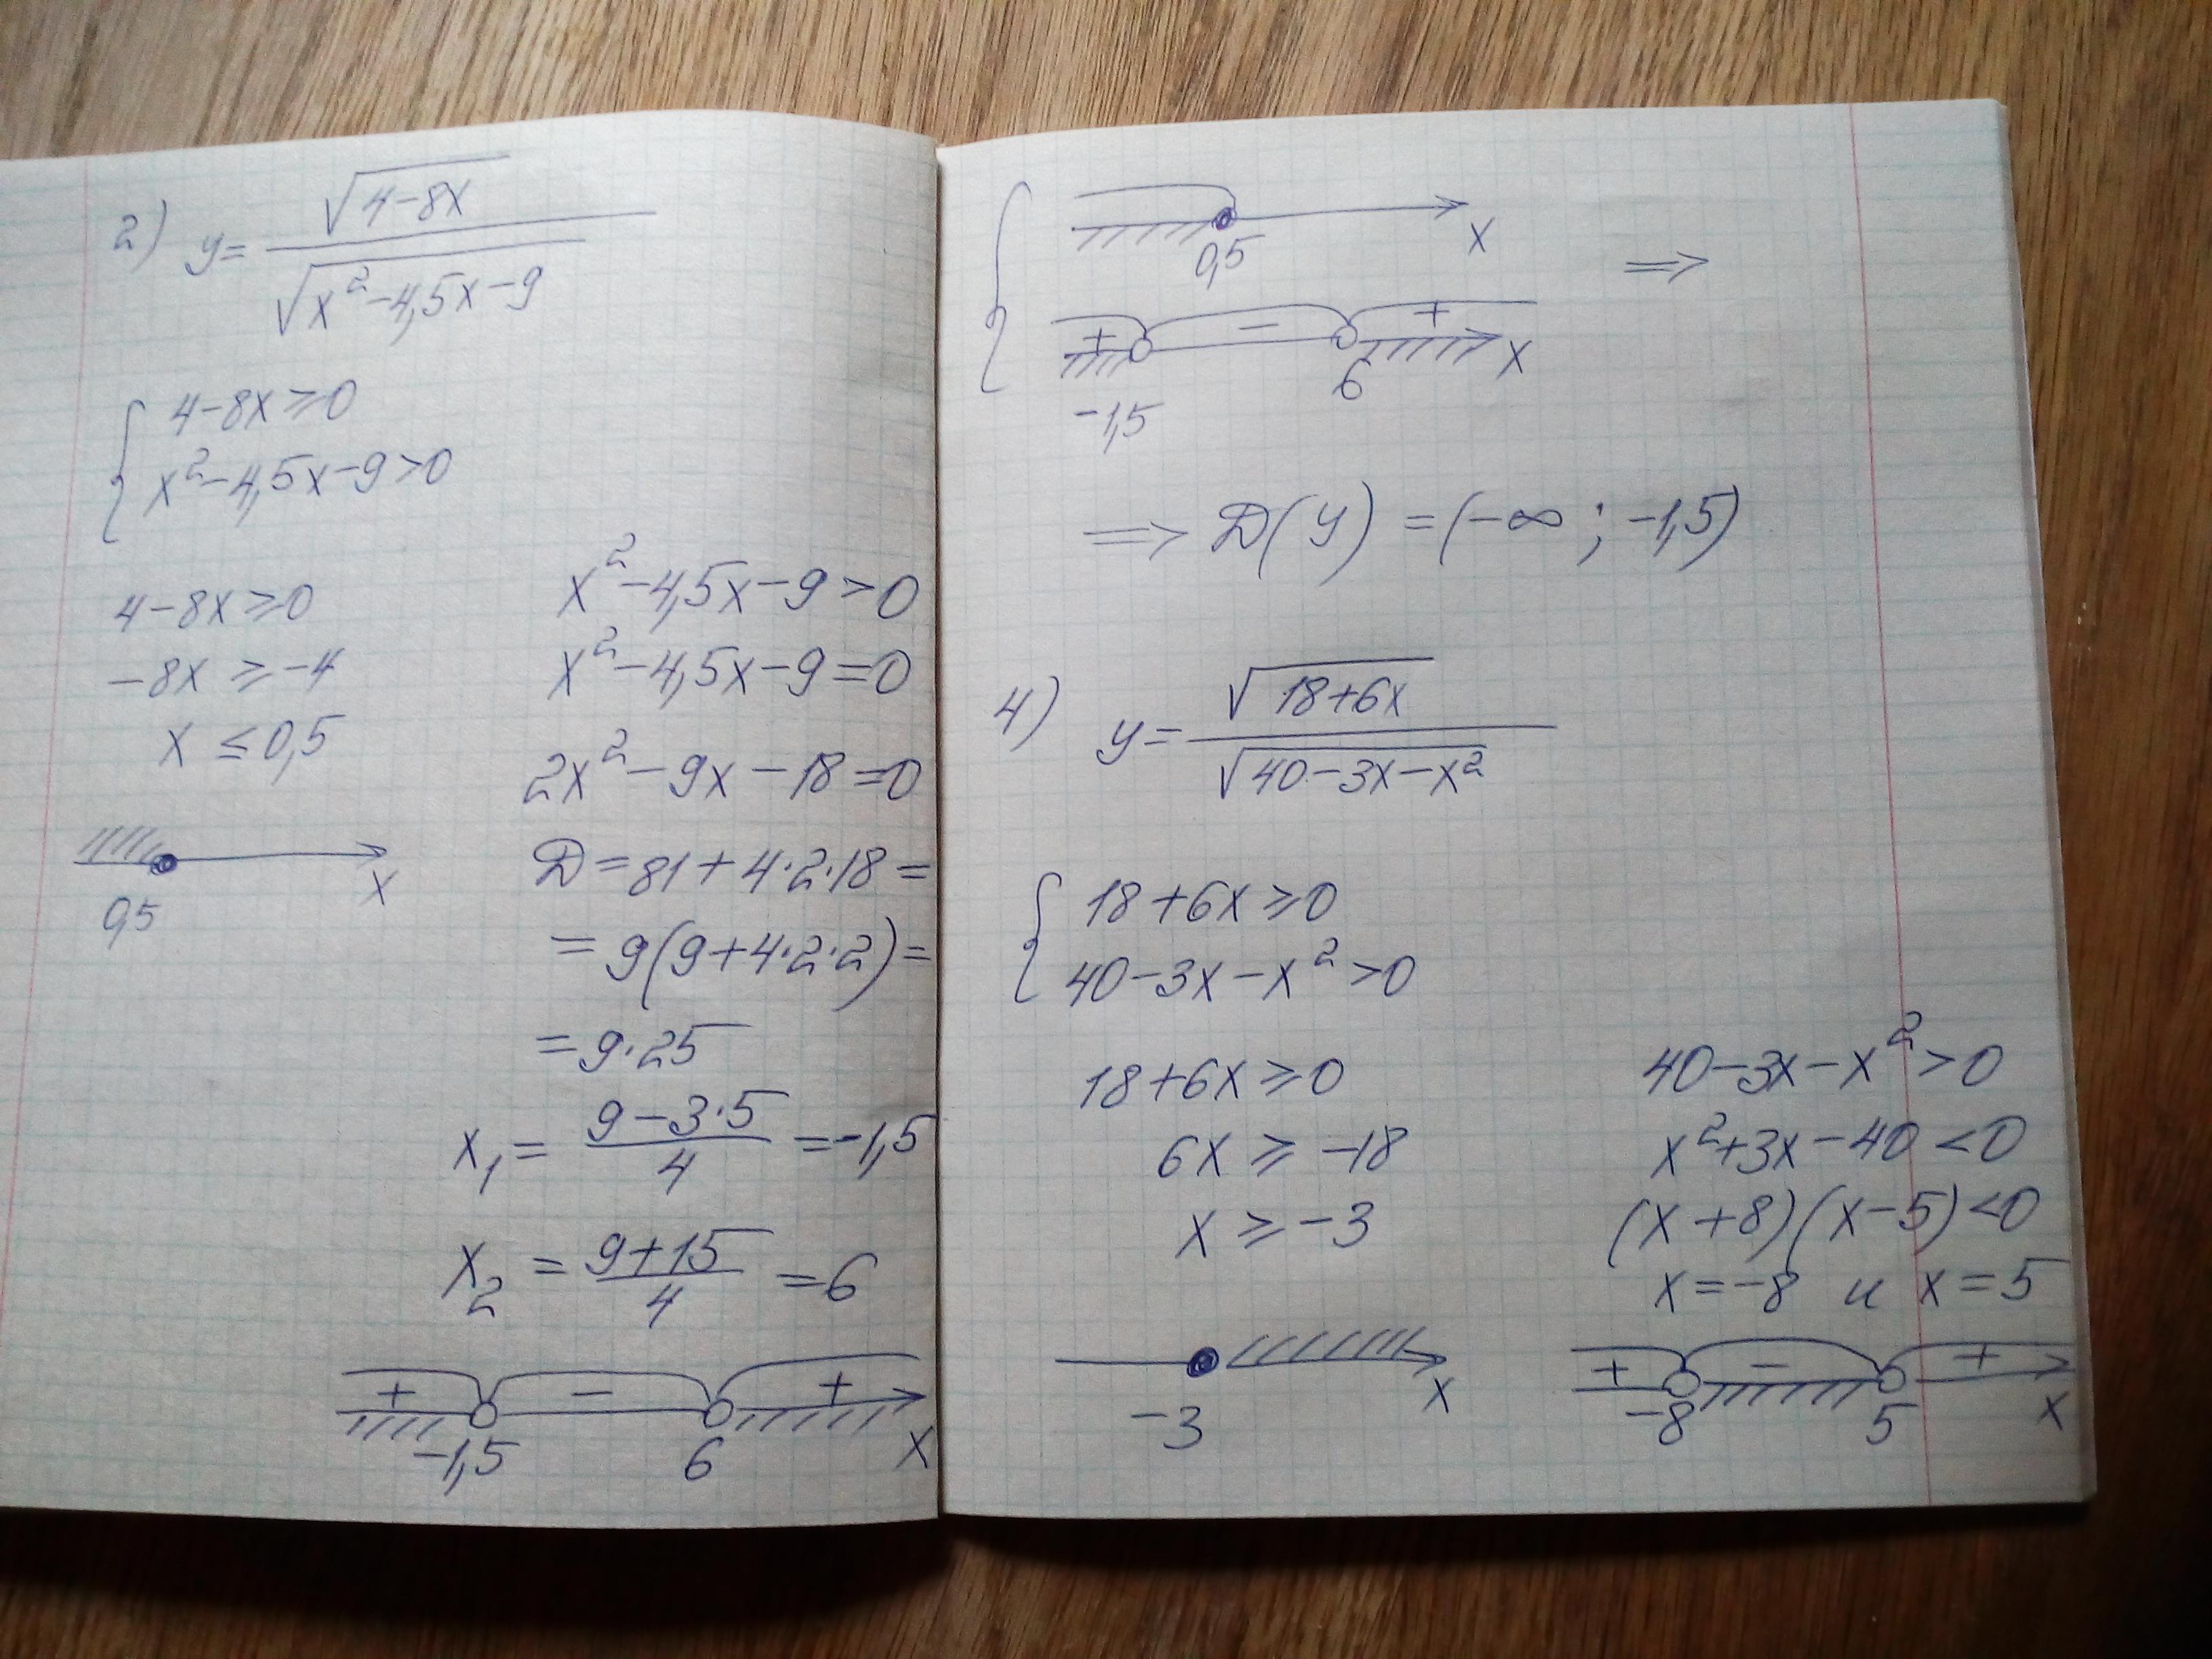 2) y = √(4-8x) / √(x²-4,5x-9)
{ 4-8x ≥ 0
x²-4,5x-9 > 0
4-8x ≥ 0
-8x ≥ -4
x ≤ 0,5
0,5 x
x²-4,5x-9 > 0
x²-4,5x-9 = 0
2x²-9x-18 = 0
D = 81 + 4·2·18 =
= 9(9+4·2·2) =
= 9·25
x₁ = (9-3·5)/4 = -1,5
x₂ = (9+15)/4 = 6
+ - +
-1,5 6 x
{ 0,5 x
+ - +
-1,5 6 x
⇒
⇒ D(y) = (-∞; -1,5)
4) y = √(18+6x) / √(40-3x-x²)
{ 18+6x ≥ 0
40-3x-x² > 0
18+6x ≥ 0
6x ≥ -18
x ≥ -3
-3 x
40-3x-x² > 0
x²+3x-40 < 0
(x+8)(x-5) < 0
x = -8 и x = 5
+ - +
-8 5 x